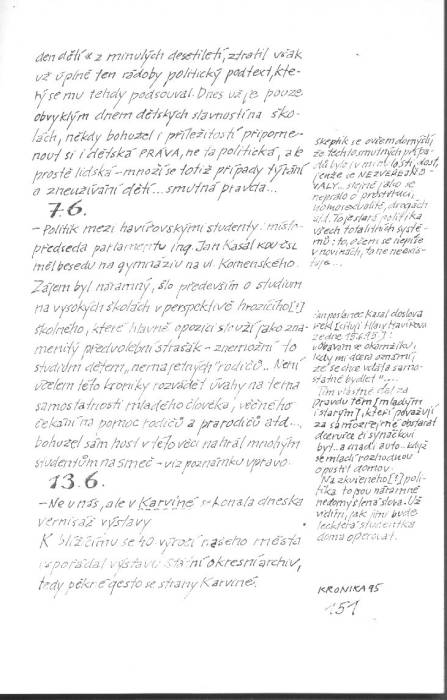 den dětí « z minulých desetiletí, ztratil však
už úplně ten rádoby politický podtext, kte-
rý se mu tehdy podsouval. Dnes už je pouze
obvyklým dnem dětských slavností na ško-
lách, někdy bohužel i příležitostí připome-
nout si i dětská PRÁVA, ne ta politická, ale
prostě lidská - množí se totiž případy týrání
a zneužívání dětí... smutná pravda...
7.6.
- Politik mezi havířovskými studenty: místo-
předseda parlamentu ing. Jan Kasal KDU ČSL
měl besedu na gymnáziu na ul. Komenského.
Zájem byl náramný, šlo především o studium
na vysokých školách v perspektivě hrozícího[!]
školného, které hlavně opozici slouží jako zna-
menitý předvolební strašák - znemožní to
studium dětem, nemajetných rodičů... Není
účelem této kroniky rozvádět úvahy na téma
samostatnosti mladého člověka, věčného
čekání na pomoc rodičů a prarodičů atd...,
bohužel sám host v této věci nahrál mnohým
studentům na smeč - viz poznámku vpravo.
13.6.
- Ne u nás, ale v Karviné se konala dneska
vernisáž výstavy
K blížícímu se 40. výročí našeho města
uspořádal výstavu Státní okresní archiv,
tedy pěkné gesto se strany Karviné.
skeptik se ovšem domýšlí,
že těchto smutných přípa-
dů bylo i v minulosti dost,
jenže se NEZVEŘEJŇO-
VALY... stejně jako se
nepsalo o prostituci,
homosexualitě, drogách
atd. To je stará politika
všech totalitních systé-
mů: to, o čem se nepíše
v novinách, to neexis-
tuje...
pan poslanec Kasal doslova
řekl [cituji Hlavy Havířova
ze dne 15.6.95]:
"Obávám se okamžiku,
kdy mi dcera oznámí,
že se chce vdát a samo-
statně bydlet"...
Tím vlastně dal za
pravdu těm [mladým
i starým], kteří považují
za samozřejmé obstarat
dcerušce či synáčkovi
byt... a snad i auto... když
se mladí rozhodnou
opustit domov.
Na zkušeného [!] poli-
tika to jsou náramně
nedomyšlená slova. Už
vidím, jak jimi bude
leckterá studentka
doma operovat.
KRONIKA 95
151